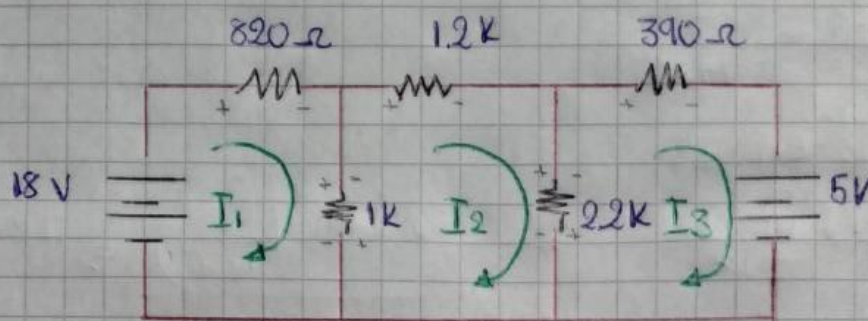 820Ω 1.2K 390Ω
18 V I1 1K I2 22K I3 5V